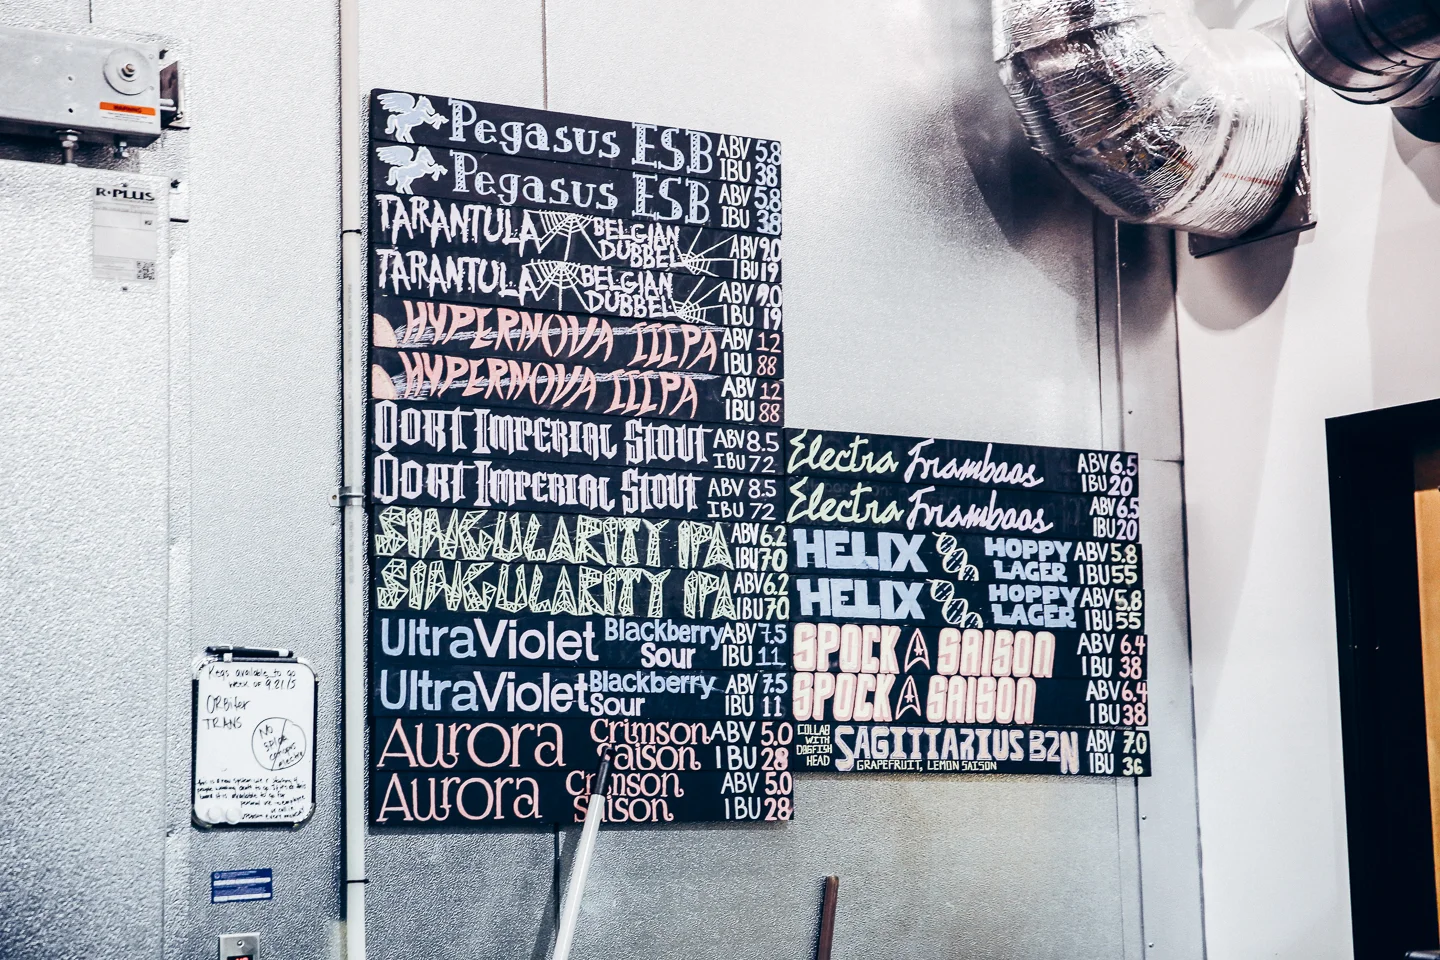 R-PLUS
Pegasus ESB ABV 5.8
IBU 38
Pegasus ESB ABV 5.8
IBU 38
TARANTULA BELGIAN DUBBEL ABV 9.0
IBU 19
TARANTULA BELGIAN DUBBEL ABV 9.0
IBU 19
HYPERNOVA IIIPA ABV 12
IBU 88
HYPERNOVA IIIPA ABV 12
IBU 88
OORT IMPERIAL STOUT ABV 8.5
IBU 72
OORT IMPERIAL STOUT ABV 8.5
IBU 72
SINGULARITY IPA ABV 6.2
IBU 70
SINGULARITY IPA ABV 6.2
IBU 70
UltraViolet Blackberry Sour ABV 7.5
IBU 11
UltraViolet Blackberry Sour ABV 7.5
IBU 11
Aurora Crimson Saison ABV 5.0
IBU 28
Aurora Crimson Saison ABV 5.0
IBU 28
Electra Frambaas ABV 6.5
IBU 20
Electra Frambaas ABV 6.5
IBU 20
HELIX HOPPY LAGER ABV 5.8
IBU 55
HELIX HOPPY LAGER ABV 5.8
IBU 55
SPOCK SAISON ABV 6.4
IBU 38
SPOCK SAISON ABV 6.4
IBU 38
COLLAB WITH DOGFISH HEAD
SAGITTARIUS B2N ABV 7.0
GRAPEFRUIT, LEMON SAISON IBU 36
Kegs available to go
week of 9/21/15
ORBiter
TRANS
NO